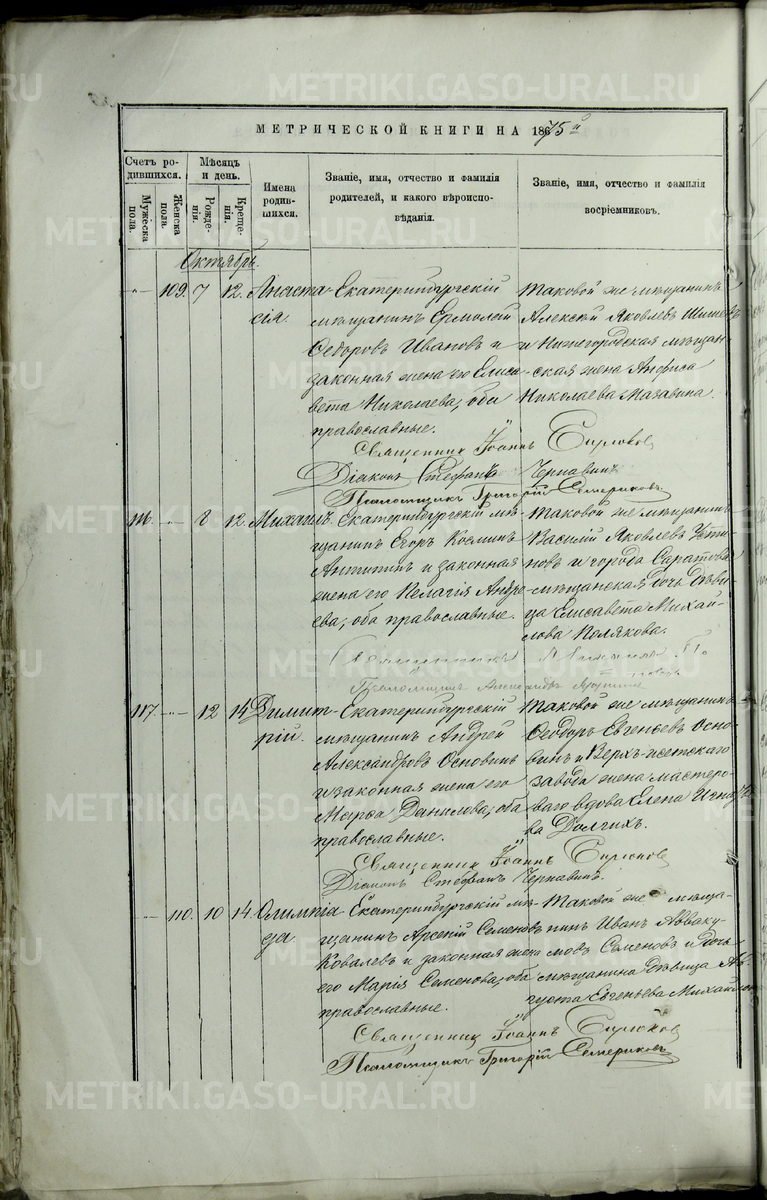 METRIKI.GASO-URAL.RU
МЕТРИЧЕСКОЙ КНИГИ НА 1875й
Счетъ родившихся.
Мужеска пола.
Женска пола.
Мѣсяцъ и день.
Рожденія.
Крещенія.
Имена родившихся.
Званіе, имя, отчество и фамилія родителей, и какого вѣроисповѣданія.
Званіе, имя, отчество и фамилія воспріемниковъ.
Октябрь.
109. 7 12. Анастасія.
Екатеринбургскій
мѣщанинъ Ермолай
Ѳедоровъ Ивановъ и
законная жена его Елиса-
вета Николаева, оба
православные.
Таковой же мѣщанинъ
Алексѣй Яковлевъ
и Нижегородская мѣщан-
ская жена Анфиса
Николаева Мазавина.
Священникъ Іоаннъ Бирюковъ
Діаконъ Стефанъ Чернавинъ
Псаломщикъ Григорій Семериковъ
116. 8 12. Михаилъ.
Екатеринбургскій мѣ-
щанинъ Егоръ Козминъ
Антипинъ и законная
жена его Пелагія Андре-
ева, оба православные.
Таковой же мѣщанинъ
Василій Яковлевъ Усти-
новъ и города Саратова
мѣщанская дочь дѣви-
ца Елисавета Михай-
лова Полякова.
Священникъ
Псаломщикъ Александръ
117. 12 14 Димитрій.
Екатеринбургскій
мѣщанинъ Андрей
Александровъ Основинъ
и законная жена его
Марѳа Данилова, оба
православные.
Таковой же мѣщанинъ
Ѳеодоръ Евгеньевъ Осно-
винъ и Верхъ-исетскаго
завода жена мастеро-
ваго вдова Елена Игнатье-
ва Долгихъ.
Священникъ Іоаннъ Бирюковъ
Діаконъ Стефанъ Чернавинъ.
110. 10 14. Олимпіада
Екатеринбургскій мѣ-
щанинъ Арсеній Семеновъ
Ковалевъ и законная жена
его Марія Семенова, оба
православные.
Таковой же мѣща-
нинъ Иванъ Авваку-
мовъ Семеновъ и дочь
мѣщанина дѣвица Ав-
густа Евгеньева
Священникъ Іоаннъ Бирюковъ
Псаломщикъ Григорій Семериковъ